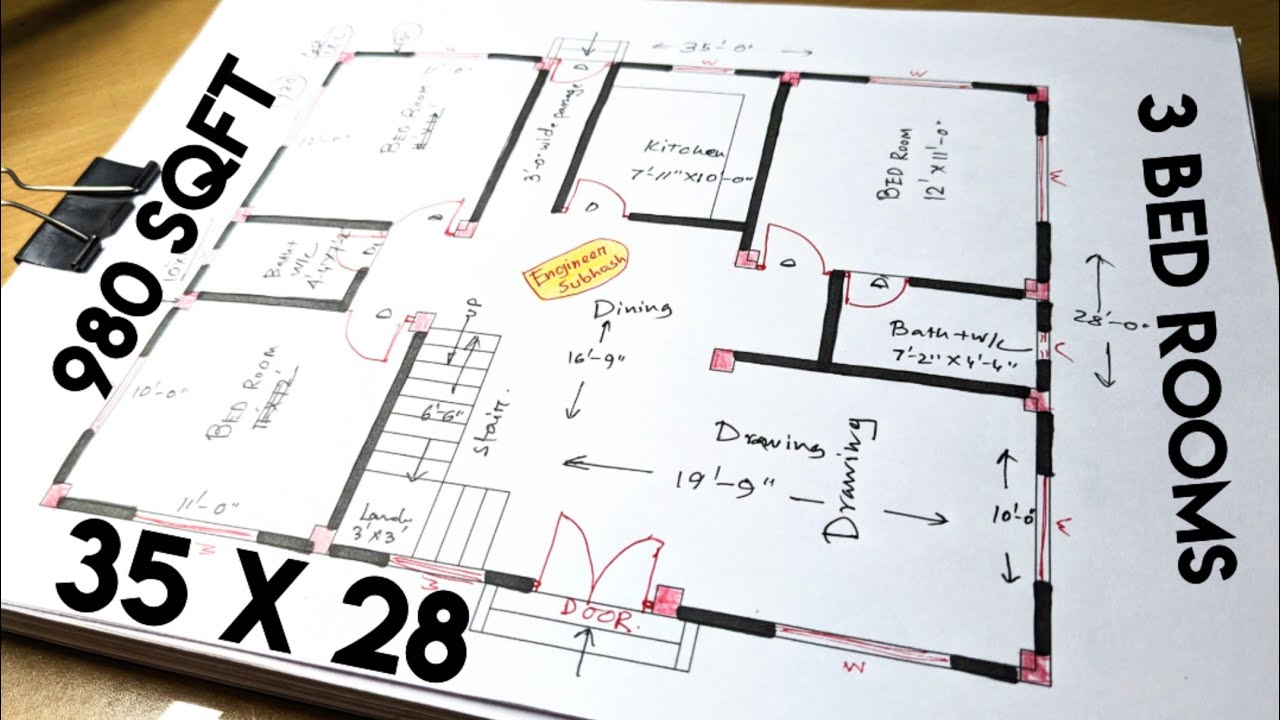 980 SQFT
35 X 28
3 BED ROOMS
35'-0"
28'-0"
11'-0"
BED ROOM
3'-0" wide passage
D
D
Kitchen
7'-11" X 10'-0"
BED ROOM
12' X 11'-0"
W
W
W
D
D
D
D
D
D
Bath+
W/C
4'-4"X7'-2"
Engineer
Subhash
Dining
16'-9"
Bath+W/C
7'-2" X 4'-4"
UP
6'-6"
Stair.
10'-0"
BED ROOM
Drawing
19'-9"
Drawing
10'-0"
11'-0"
Land
3'X3'
DOOR.
W
W
W
W